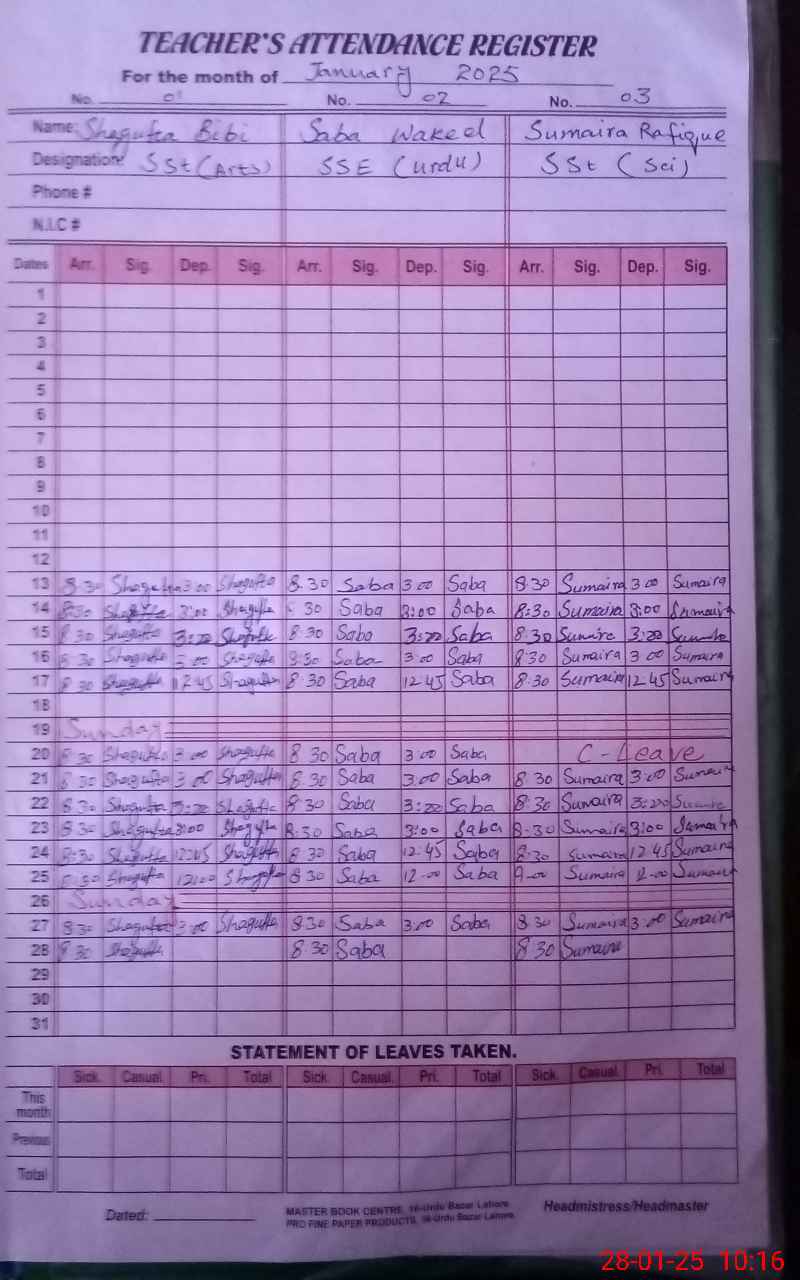 TEACHER'S ATTENDANCE REGISTER
For the month of January 2025
No. 01 No. 02 No. 03
Name: Shagufta Bibi Saba Waked Sumaira Rafique
Designation: SSt (Arts) SSE (Urdu) SSt (Sci)
Phone #
N.I.C #
Dates Arr. Sig. Dep. Sig. Arr. Sig. Dep. Sig. Arr. Sig. Dep. Sig.
1
2
3
4
5
6
7
8
9
10
11
12
13 8:30 Shagufta 3:00 Shagufta 8:30 Saba 3:00 Saba 8:30 Sumaira 3:00 Sumaira
14 8:30 Shagufta 3:00 Shagufta 30 Saba 3:00 Saba 8:30 Sumaira 3:00 Sumaira
15 8:30 Shagufta 3:20 Shagufta 8:30 Saba 3:20 Saba 8:30 Sumaira 3:20 Sumaira
16 8:30 Shagufta 3:00 Shagufta 8:30 Saba 3:00 Saba 8:30 Sumaira 3:00 Sumaira
17 8:30 Shagufta 12:45 Shagufta 8:30 Saba 12:45 Saba 8:30 Sumaira 12:45 Sumaira
18
19 Sunday
20 8:30 Shagufta 3:00 Shagufta 8:30 Saba 3:00 Saba C-Leave
21 8:30 Shagufta 3:00 Shagufta 8:30 Saba 3:00 Saba 8:30 Sumaira 3:00 Sumaira
22 8:30 Shagufta 3:20 Shagufta 8:30 Saba 3:20 Saba 8:30 Sumaira 3:20 Sumaira
23 8:30 Shagufta 3:00 Shagufta 8:30 Saba 3:00 Saba 8:30 Sumaira 3:00 Sumaira
24 8:30 Shagufta 12:45 Shagufta 8:30 Saba 12:45 Saba 8:30 Sumaira 12:45 Sumaira
25 8:30 Shagufta 12:00 Shagufta 8:30 Saba 12:00 Saba 9:00 Sumaira 12:00 Sumaira
26 Sunday
27 8:30 Shagufta 3:00 Shagufta 8:30 Saba 3:00 Saba 8:30 Sumaira 3:00 Sumaira
28 8:30 Shagufta 8:30 Saba 8:30 Sumaira
29
30
31
STATEMENT OF LEAVES TAKEN.
Sick. Casual. Pri. Total Sick. Casual. Pri. Total Sick. Casual. Pri. Total
This month
Previous
Total
Dated: MASTER BOOK CENTRE, 16-Urdu Bazar Lahore Headmistress/Headmaster
PRO FINE PAPER PRODUCTS, 16-Urdu Bazar Lahore
28-01-25 10:16